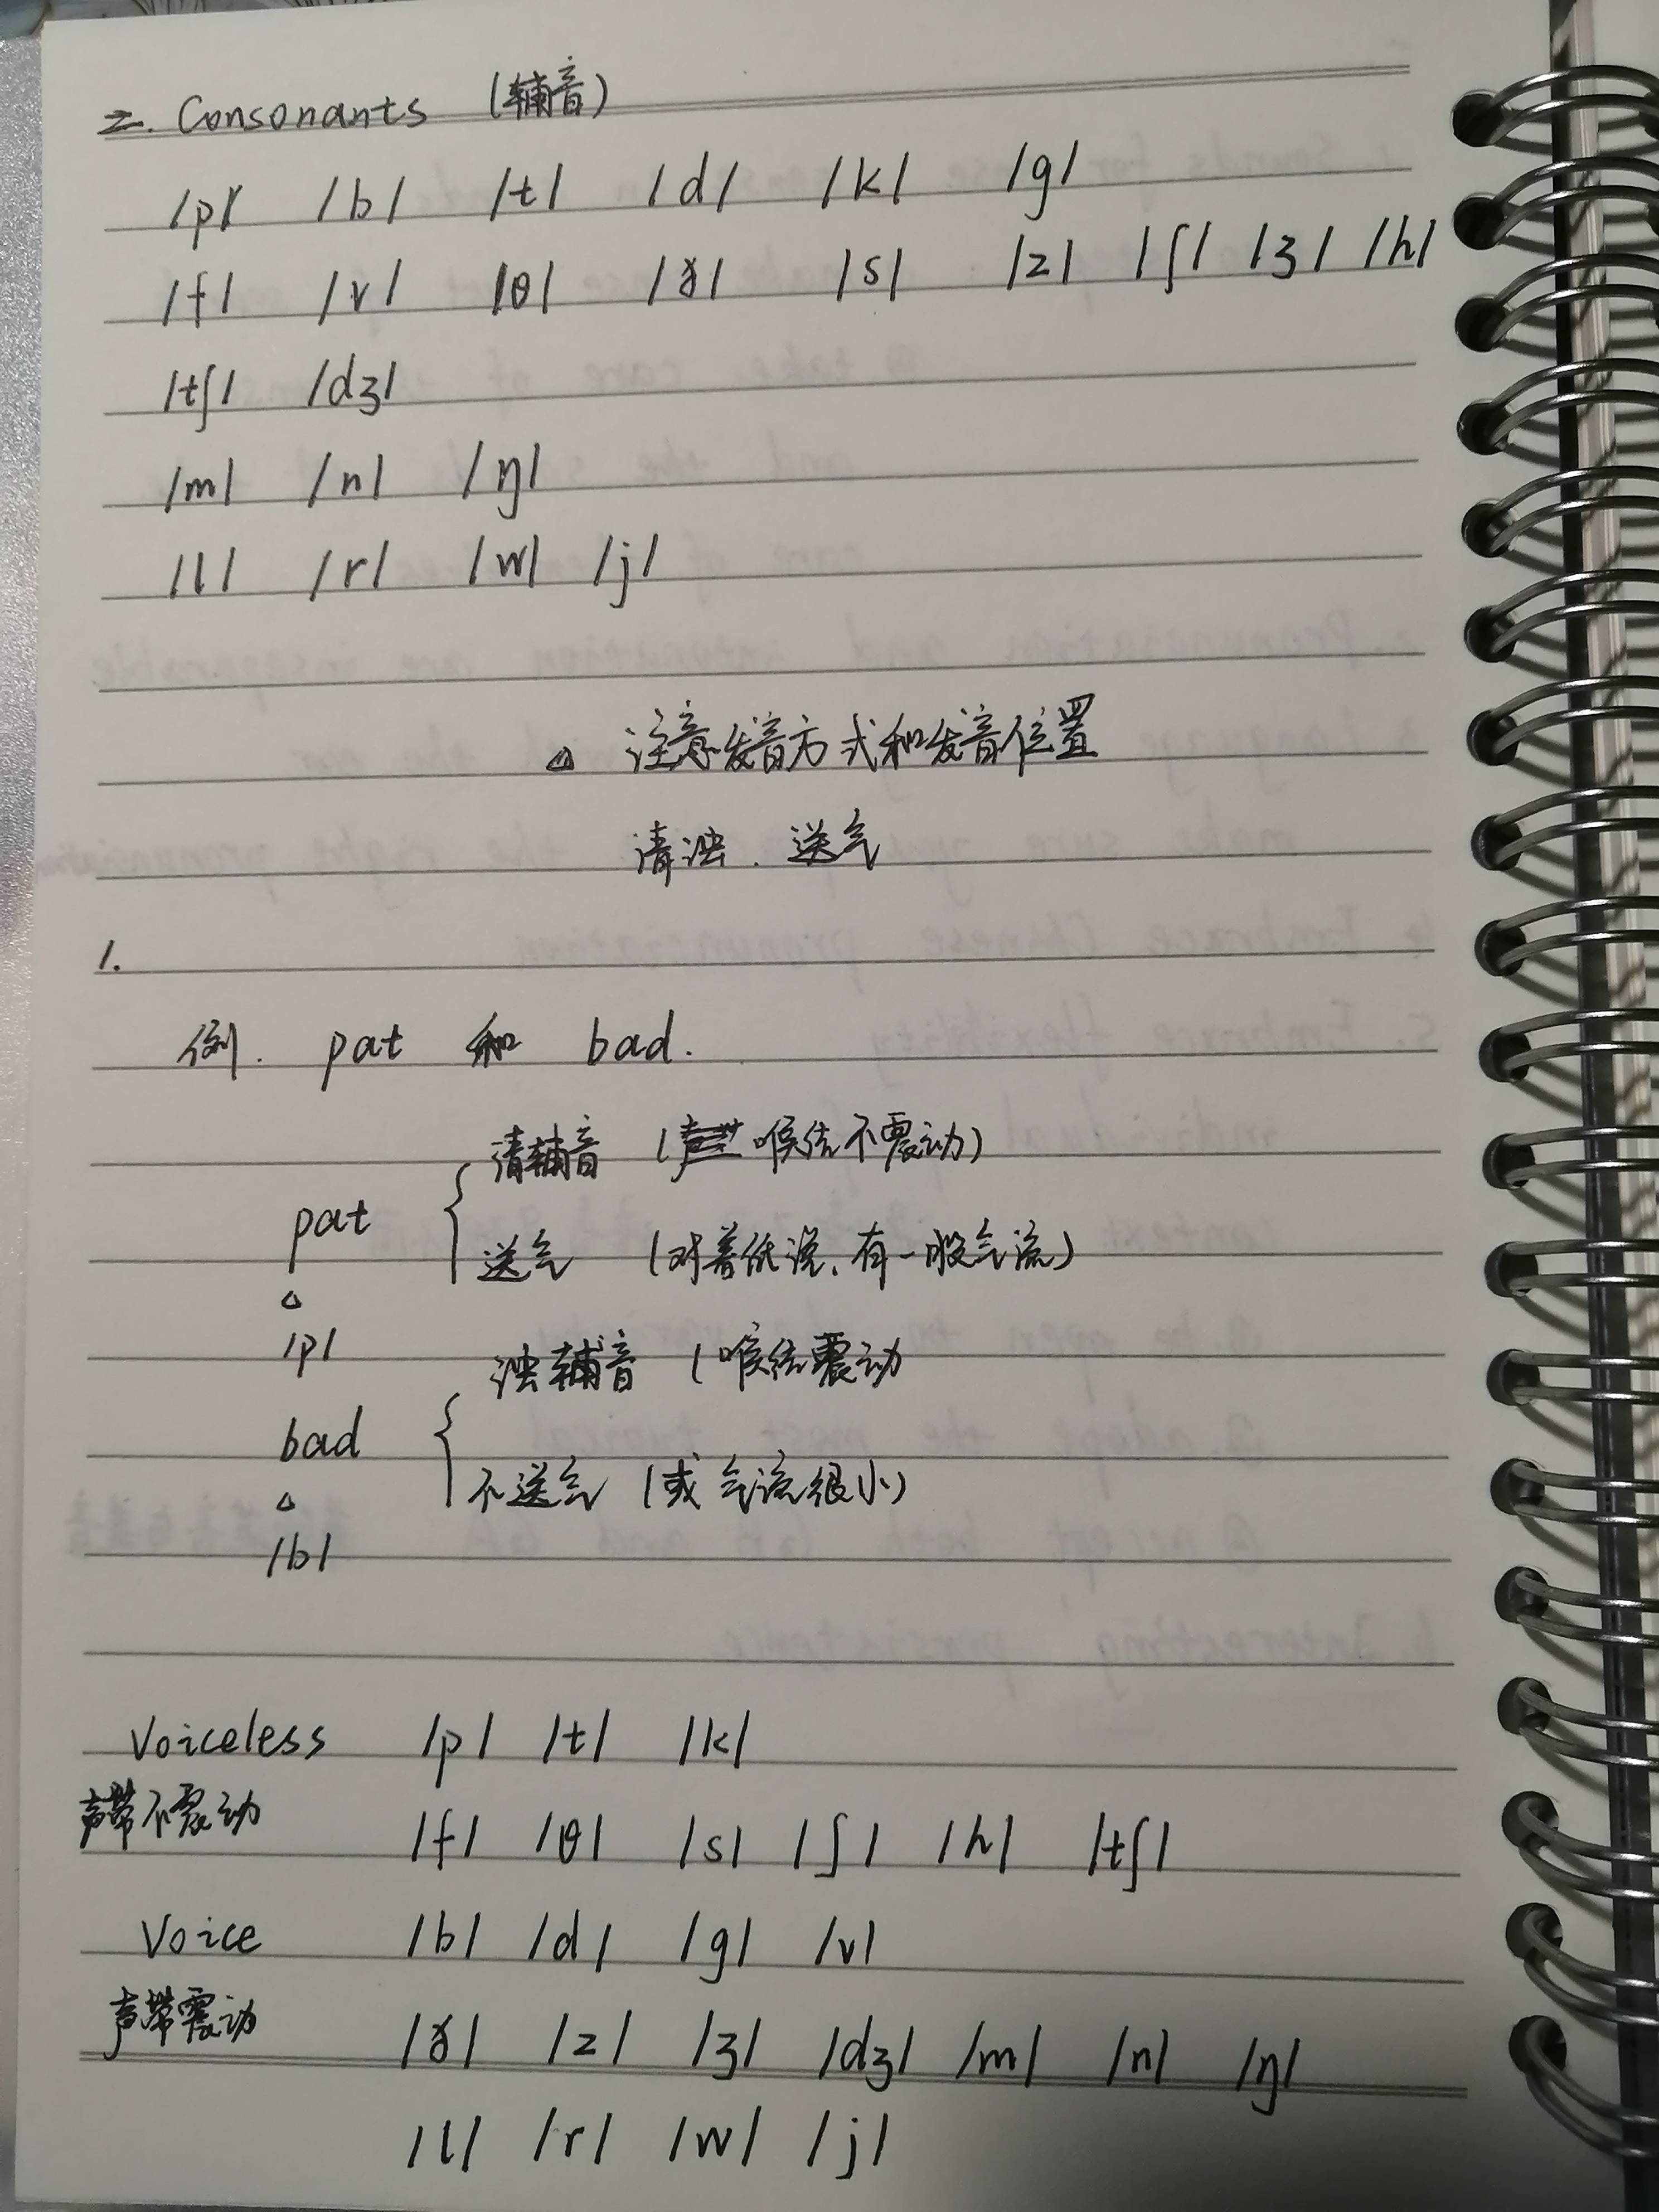 二. Consonants (辅音)
/p/ /b/ /t/ /d/ /k/ /g/
/f/ /v/ /θ/ /ð/ /s/ /z/ /ʃ/ /ʒ/ /h/
/tʃ/ /dʒ/
/m/ /n/ /ŋ/
/l/ /r/ /w/ /j/
△ 注意发音方式和发音位置
清浊. 送气
1.
例. pat 和 bad.
清辅音 (喉结不震动)
pat
送气 (对着纸说, 有一股气流)
△
/p/
浊辅音 (喉结震动
bad
不送气 (或气流很小)
△
/b/
Voiceless /p/ /t/ /k/
声带不震动
/f/ /θ/ /s/ /ʃ/ /h/ /tʃ/
Voice /b/ /d/ /g/ /v/
声带震动
/ð/ /z/ /ʒ/ /dʒ/ /m/ /n/ /ŋ/
/l/ /r/ /w/ /j/